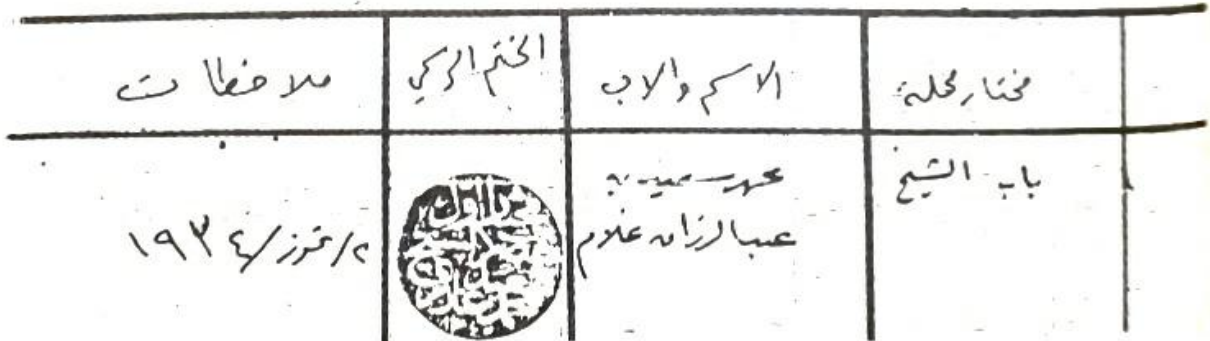 مختار محلة
الاسم والاب
الختم الرسمي
ملاحظات
باب الشيخ
عبدالرزاق غلام
٢/تموز/١٩٣٤